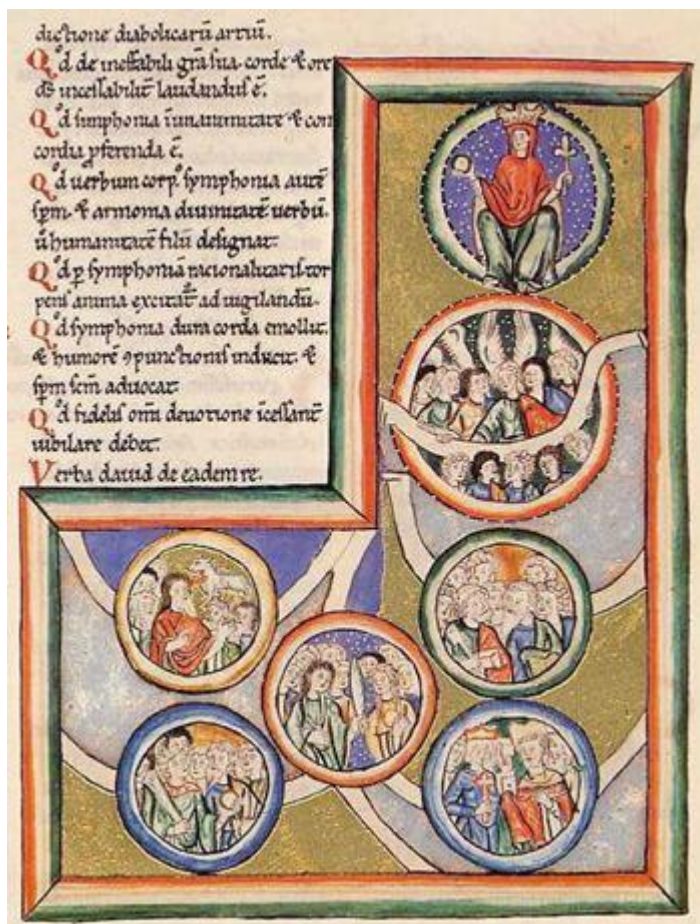 dictione diabolicarū artiū.
Qᵒd de ineffabili gr̄a sua corde & ore
ds̄ incessabilit̄ laudandus ē.
Qᵒd simphonia ī unanimitate & con
cordia p̄ferenda ē.
Qᵒd uerbum corp᷒ symphonia autē
sp̄m & armonia diuinitatē uerbū
ū humanitatē filii designat.
Qᵒd ꝑ symphoniā racionalitatis tor
pens anima excitat᷑ ad uigilandū.
Qᵒd symphonia dura corda emollit.
& humorē ꝯpunctionis inducit. &
sp̄m scm̄ aduocat.
Qᵒd fidelis om̄i deuotione īcessant̄
iubilare debet.
Verba dauid de eadem re.